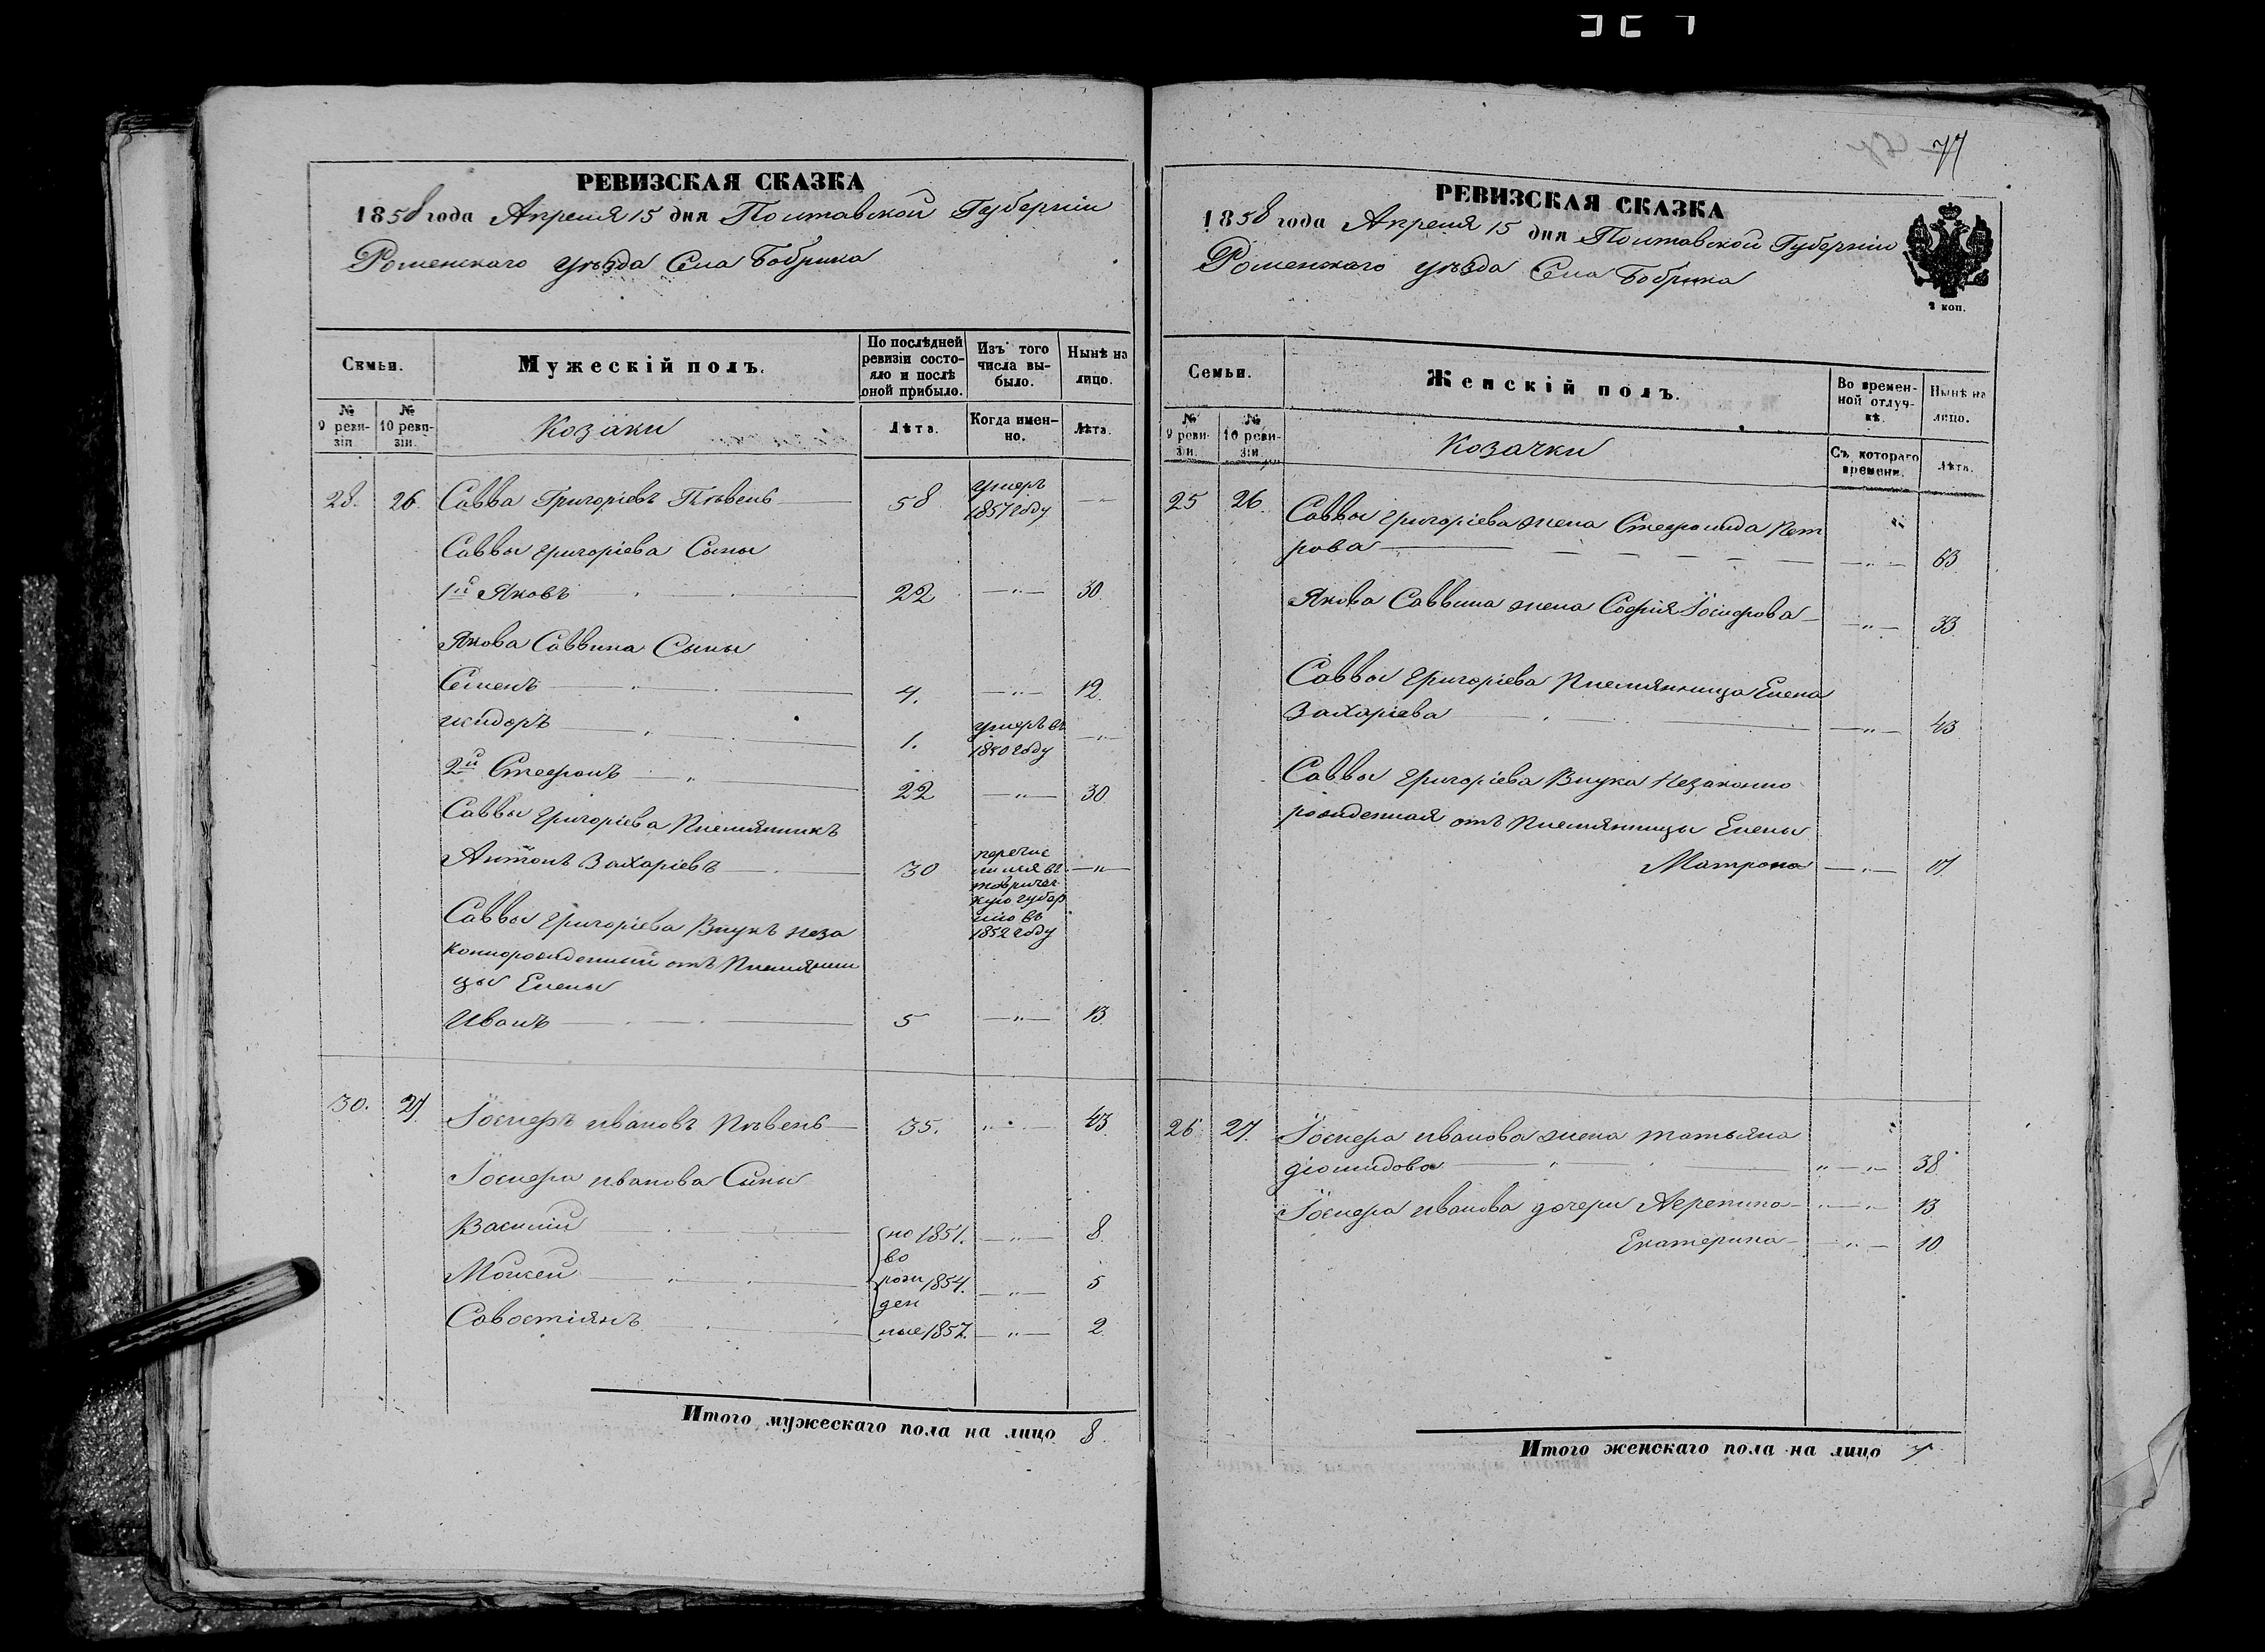 РЕВИЗСКАЯ СКАЗКА
1858 года Апреля 15 дня Полтавской Губерніи
Роменскаго уѣзда Села Бобрика
Семьи.
Мужескій полъ.
По послѣдней ревизіи состояло и послѣ оной прибыло.
Изъ того числа выбыло.
Нынѣ на лицо.
№ 9 ревизіи
№ 10 ревизіи.
Козаки
Лѣта.
Когда именно.
Лѣта.
28. 26. Савва Григоріевъ Пѣвень 58 умеръ 1857 году
Саввы Григоріева Сыны
1й Яковъ 22 30
Якова Саввина Сыны
Семенъ 4. 12.
исидоръ 1. умеръ въ 1850 году
2й Стефанъ 22 30
Саввы Григоріева Племянникъ
Антонъ Захаріевъ 30 перечислился въ таврическую губернію въ 1852 году
Саввы Григоріева Внукъ неза
коннорожденный отъ Племянни
цы Елены
Иванъ 5 13
30. 27. Іосифъ ивановъ Пѣвень 35. 43
Іосифа иванова Сыны
Василій 1851. 8
Мойсей 1854. 5
Савостіянъ 1857. 2
ново рожденные
Итого мужескаго пола на лицо 8
77
РЕВИЗСКАЯ СКАЗКА
1858 года Апреля 15 дня Полтавской Губерніи
Роменскаго уѣзда Села Бобрика
2 коп.
Семьи.
Женскій полъ.
Во временной отлучкѣ.
Нынѣ на лицо.
№ 9 ревизіи.
№ 10 ревизіи.
Козачки
Съ котораго времени.
Лѣта.
25 26. Саввы Григоріева жена Стефанида Пет
рова 63
Якова Саввина жена Софія Іосифова 33
Саввы Григоріева Племянница Елена
Захаріева 43
Саввы Григоріева Внука Незаконно
рожденная отъ Племянницы Елены
Матрона 17
26 27. Іосифа иванова жена татьяна
діомидова 38
Іосифа иванова дочери Агрепина 13
Екатерина 10
Итого женскаго пола на лицо 7